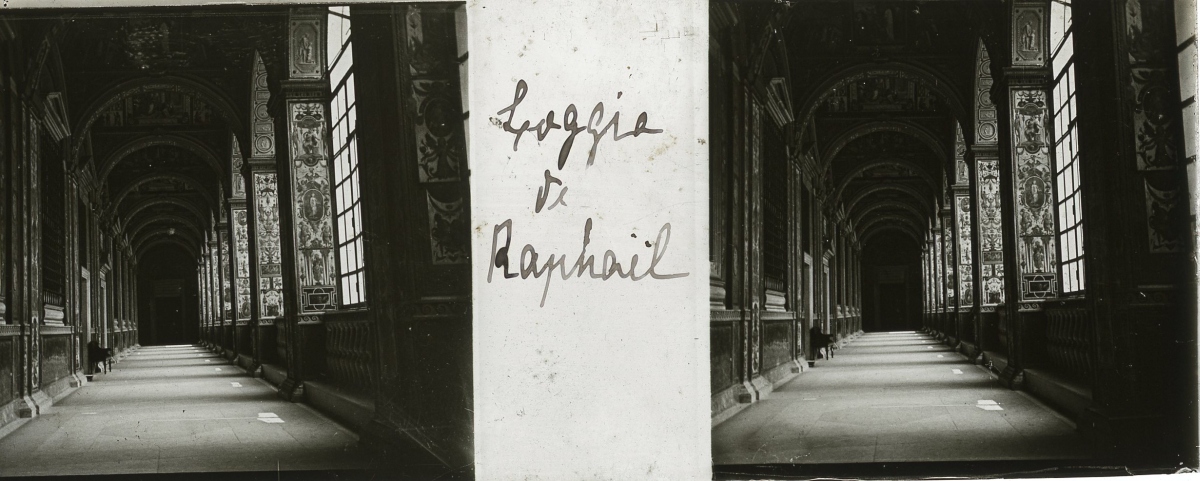 Loggia
de
Raphaël